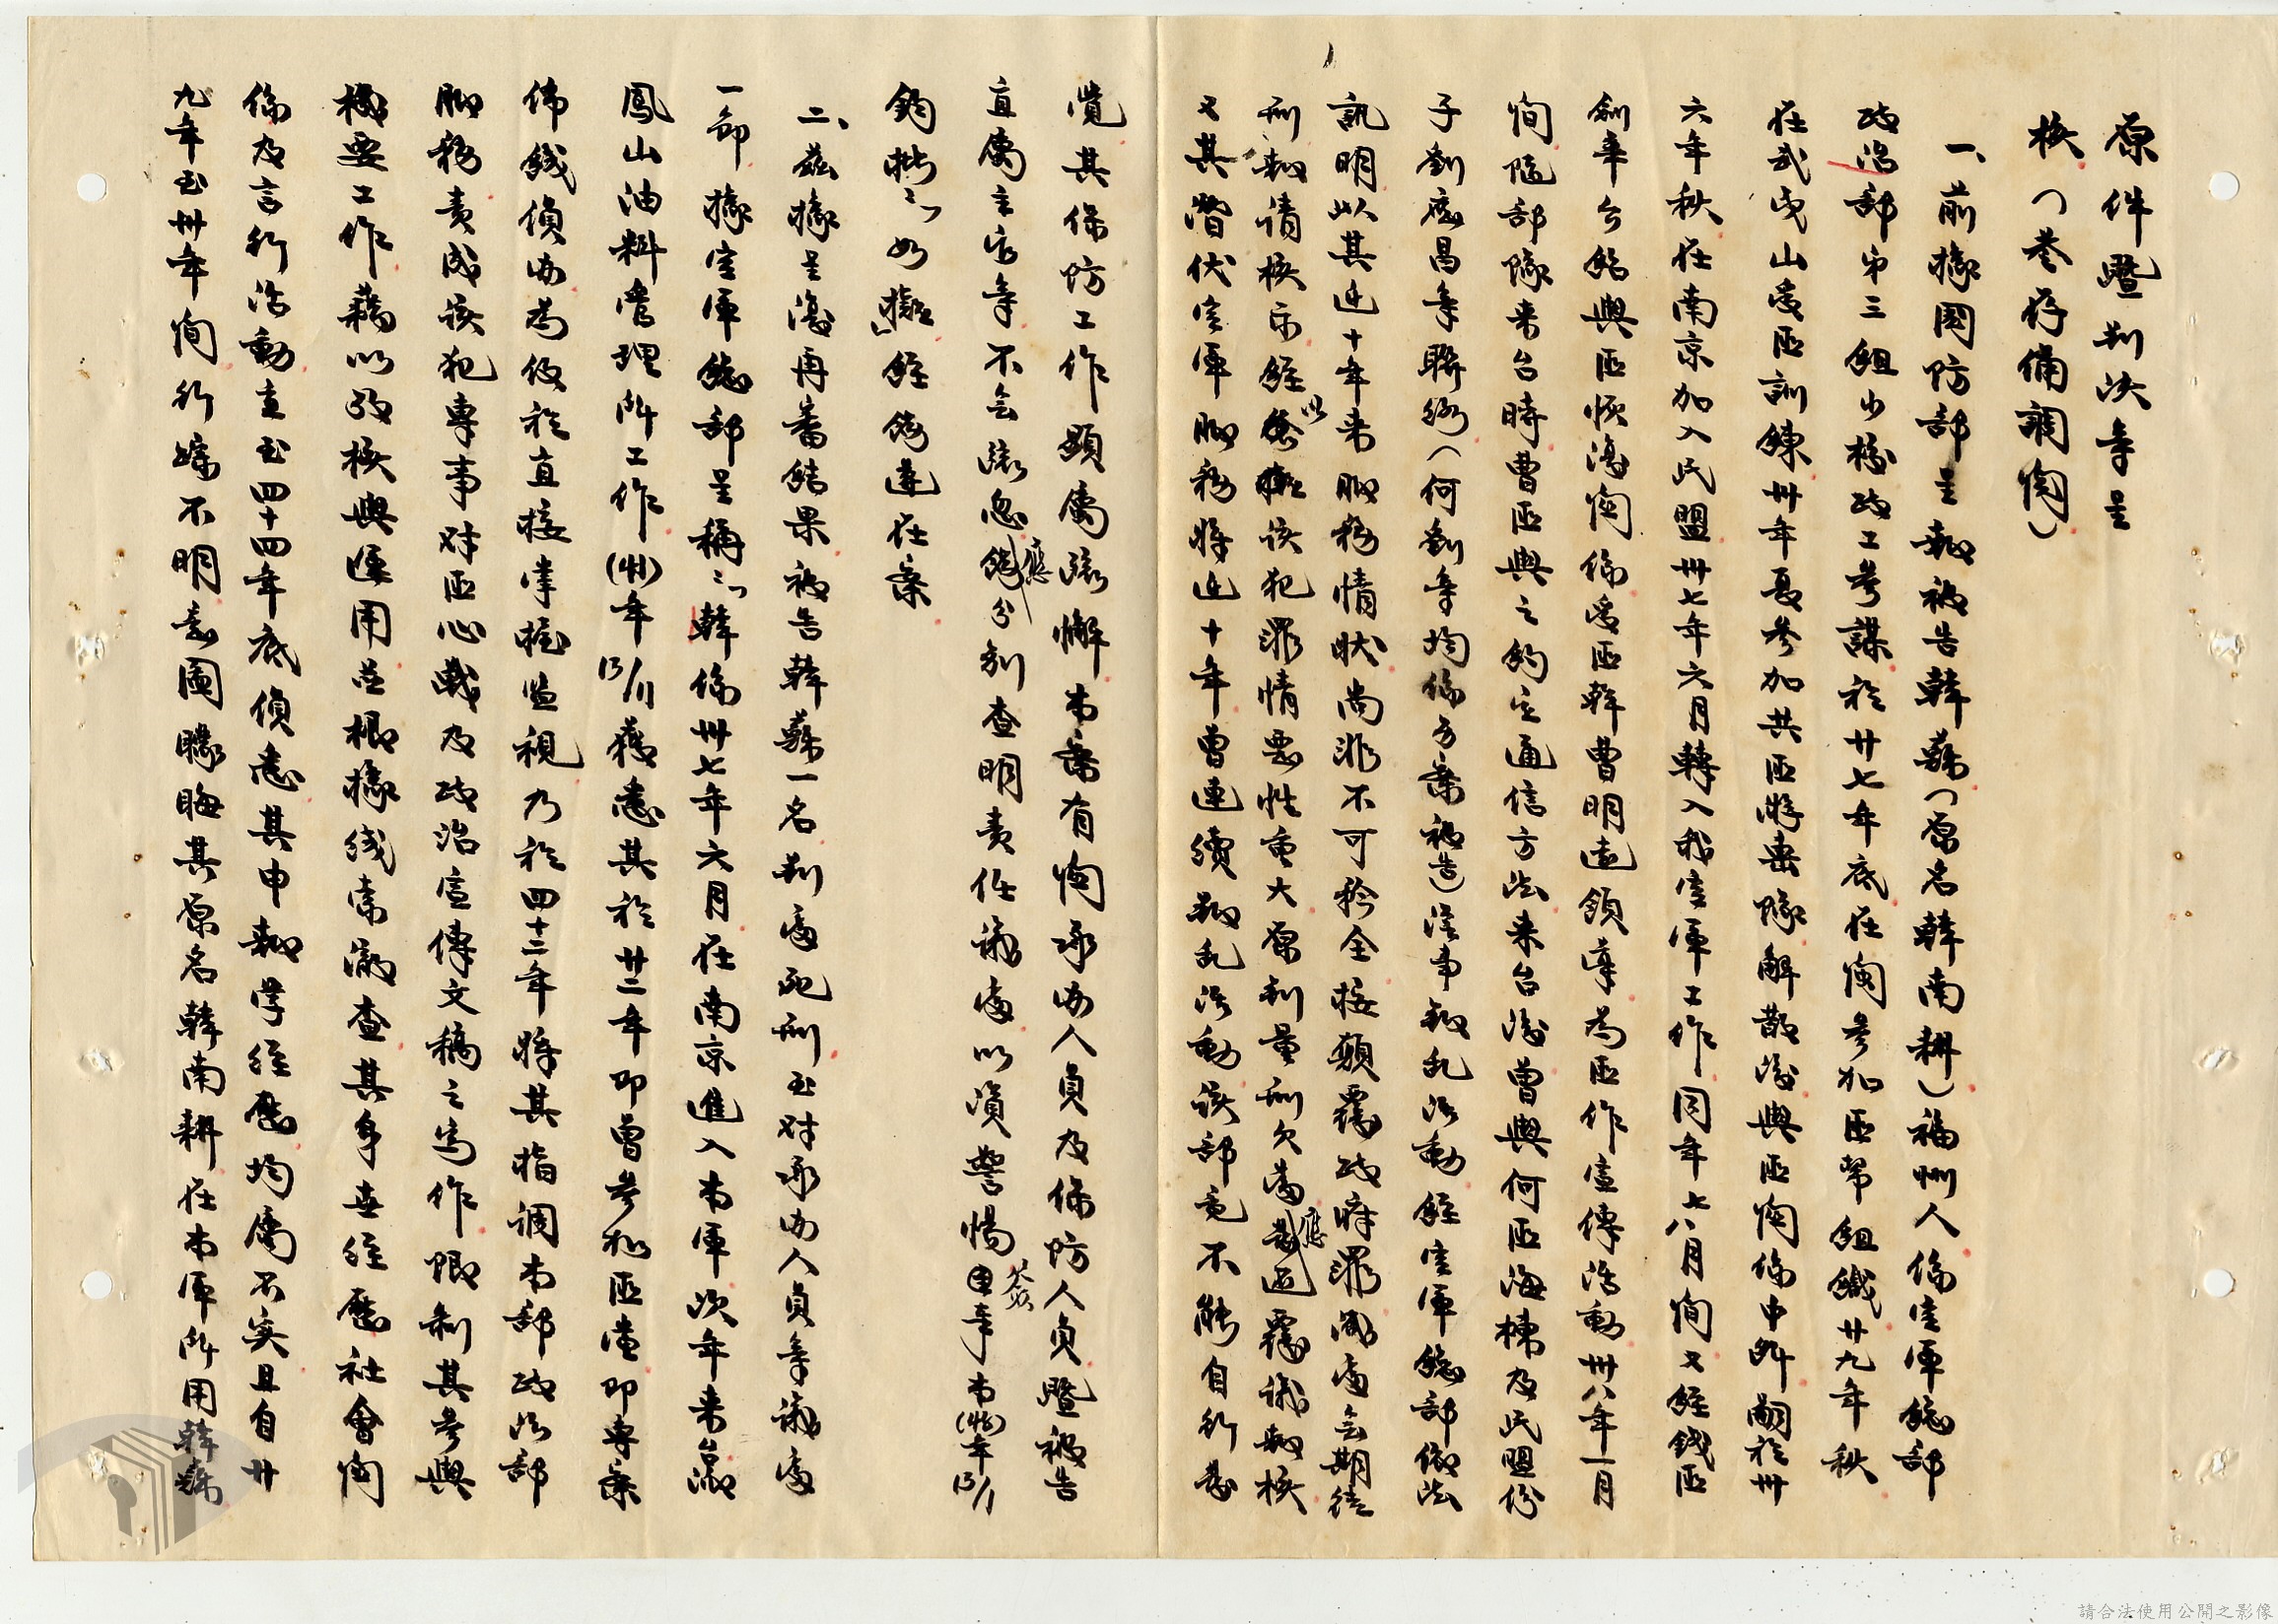 原件暨判決本呈
核(卷存備調閱)
一、前據國防部呈報被告韓蘇(原名韓南耕)福州人係空軍總部
政治部第三組少校政工參謀於廿七年底在閩參加匪幫組織廿九年秋
在武夷山受匪訓練卅年夏參加共匪游擊隊解散後與匪閩係中斷嗣於卅
六年秋在南京加入民盟卅七年六月轉入我空軍工作同年七八月間又經錢匪
劍華介紹與匪恢復關係受匪幹曹明遠領導為匪作宣傳活動卅八年一月
間隨部隊來台時曹匪與之約定通信方法來台後曾與何匪海棟及民盟份
子劉庭昌等聯絡(何劉等均係另案被告)從事叛亂活動經空軍總部依法
訊明以其近十年來服務情狀尚非不可矜全按顛覆政府罪減處無期徒
刑報請核示經以該犯罪情惡性重大原判量刑欠當應迅覆議報核
又其潛伏空軍服務將近十年曾連續叛亂活動該部竟不能自行發
覺其保防工作顯屬疏懈本案有關承辦人員及保防人員暨被告
直屬主官等不無疏忽應分別查明責任議處以資警惕簽奉本(47)年13/1
鈞批「如擬」經飭遵在案
二、茲據呈復再審結果被告韓蘇一名判處死刑至對承辦人員等議處
一節據空軍總部呈稱「韓係卅七年六月在南京進入本軍次年來台派
鳳山油料管理所工作(卅)年13/11獲悉其於廿二年即曾參加匪黨即專案
佈線偵辦為便於直接掌握監視乃於四十二年將其指調本部政治部
服務責成該犯專事對匪心戰及政治宣傳文稿之寫作賜制其參與
機要工作藉以考核與運用並根據線索澈查其身世經歷社會關
係及言行活動直至四十四年底偵悉其申報學經歷均屬不實且自廿
九年至卅年間行蹤不明意圖矇晦其原名韓南耕在本軍所用韓蘇
請合法使用公開之影像